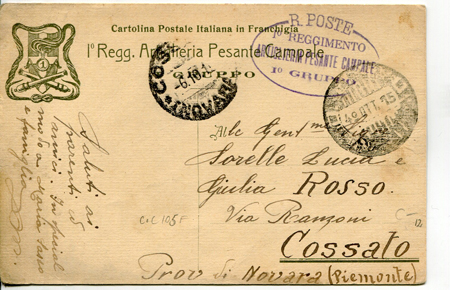 Cartolina Postale Italiana in Franchigia
1º Regg. Artiglieria Pesante Campale
GRUPPO
1
R. POSTE
1º REGGIMENTO
ARTIGLIERIA PESANTE CAMPALE
1º GRUPPO
COSS
-6.10.1
(NOVARA)
15
Alle Gent.me
Sorelle Lucia e
Giulia Rosso.
Via Ranzoni
Cossato
Prov di Novara (Piemonte)
Saluti ai
parenti ed
amici. In special
modo a Maria
famiglia
C-C 105F